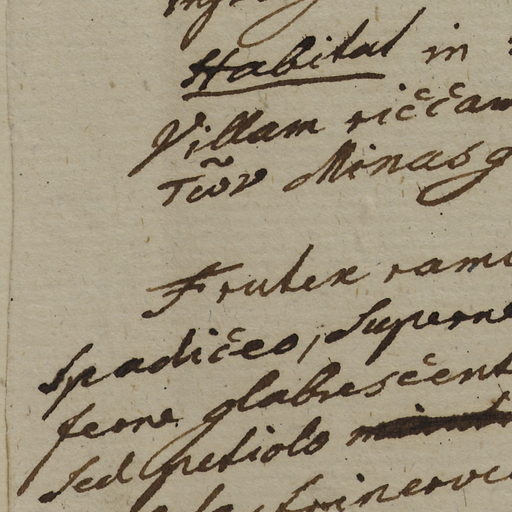 Habitat in
Villam riccam
Minas g
Frutex ramo
Spadiceo, Superne
ferne glabrescent
Sed petiolo
trinerve